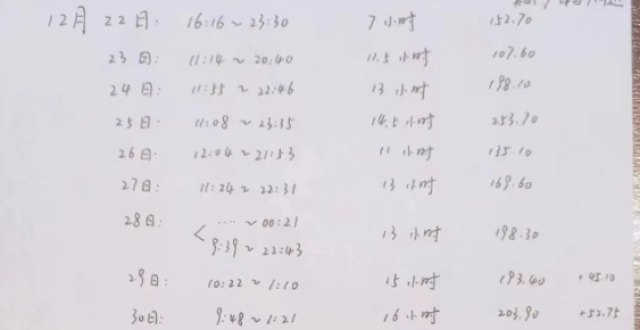 12月 22日: 16:16 ~ 23:30 7 小时 152.70
23 日: 11:14 ~ 20:40 11.5 小时 107.60
24 日: 11:55 ~ 22:46 13 小时 198.10
25日: 11:08 ~ 23:35 14.5 小时 253.70
26 日: 12:04 ~ 21:53 11 小时 135.10
27日: 11:24 ~ 22:31 13 小时 169.60
28日: < .... ~ 00:21
9:39 ~ 22:43 13 小时 198.30
29日: 10:22 ~ 1:10 15 小时 193.40 +45.10
30日: 9:48 ~ 1:21 16 小时 203.90 +52.75